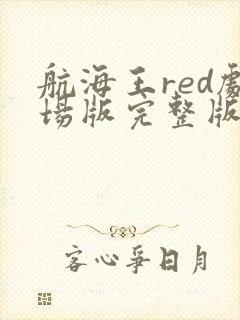 航海王red劇
場版完整版
客心爭日月